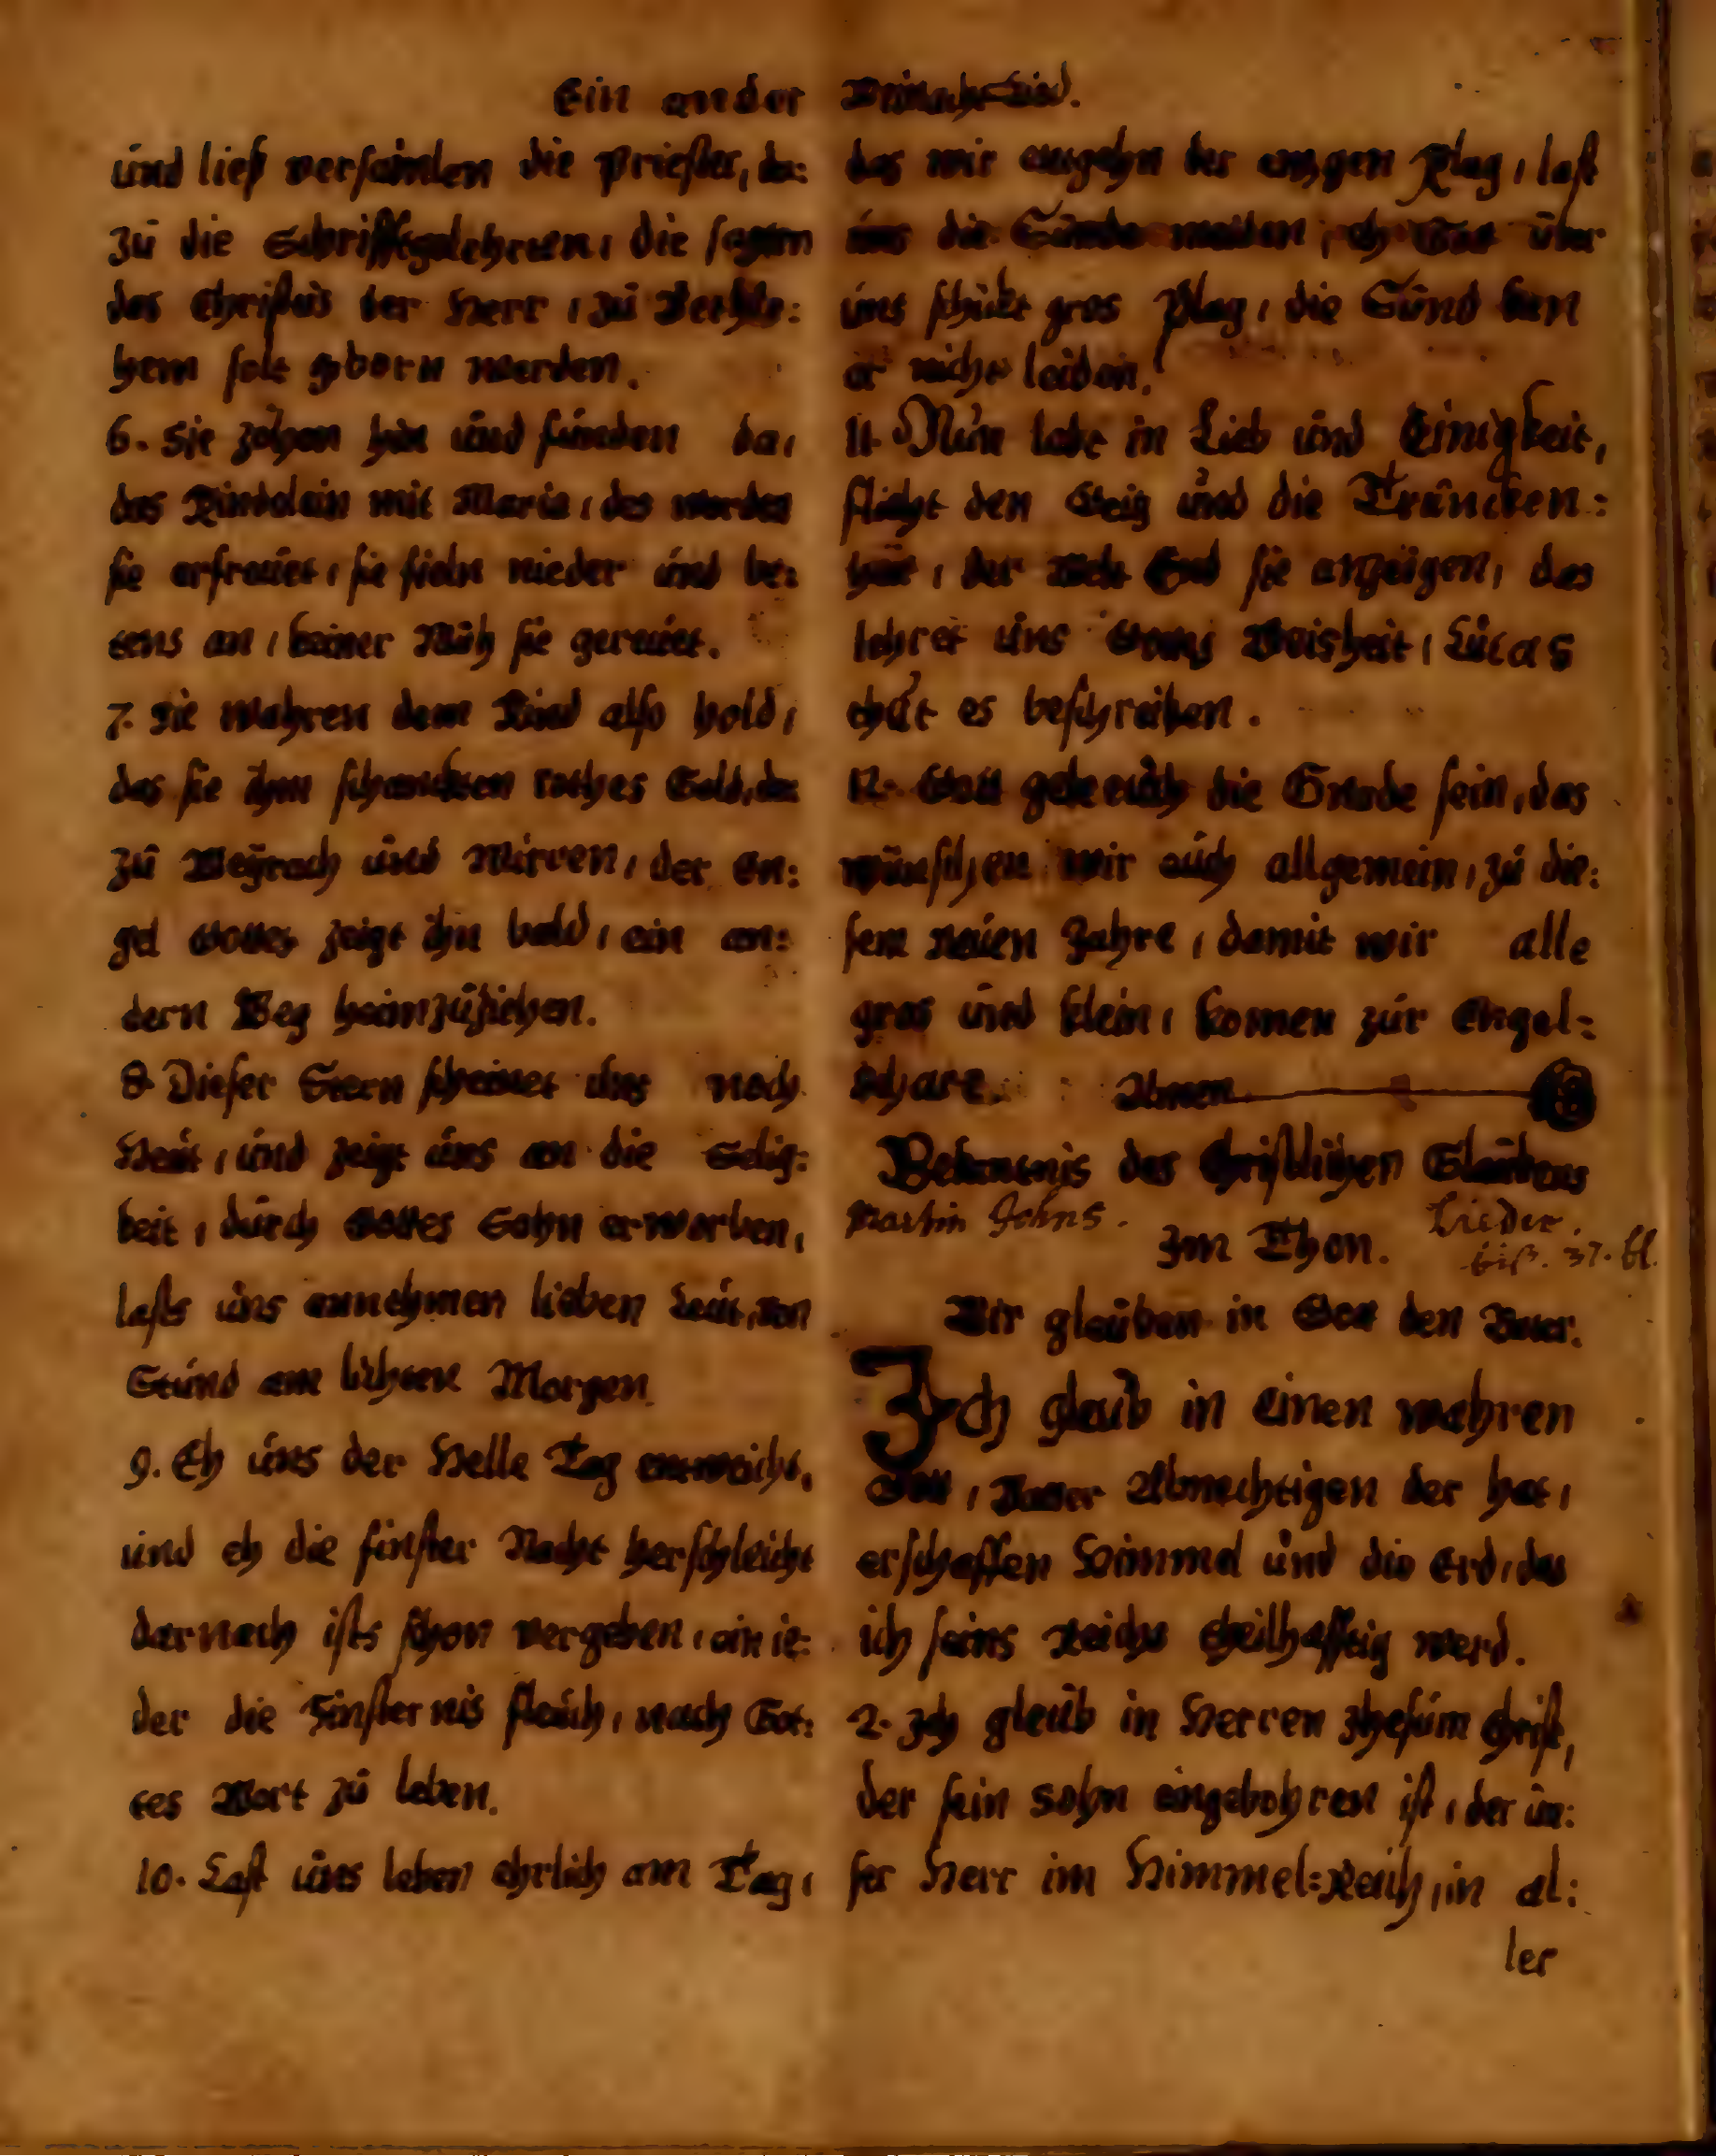 Ein ander Weinacht-Lied.
und ließ versamlen die Priester, da:
zu die Schrifftgelehrten, die sagten
das Christus der Herr, zu Bethle:
hem solt gborn werden.
6. Sie zohen hin und funden da,
das Kindelein mit Maria, des worden
sie erfreuet, sie fieln nieder und be:
tens an, keiner Müh sie gereuet.
7. Sie wahren dem Kind also hold,
das sie ihm schenckten rothes Gold, da:
zu Weyrach und Mirren, der En:
gel Gottes zeigt ihn bald, ein an:
dern Weg heimzuziehen.
8. Dieser Stern scheinet uns noch
Heut, und zeigt uns an die Selig:
keit, durch Gottes Sohn erworben,
lasts uns annehmen lieben Leut, von
Stund am lichten Morgen.
9. Eh uns der Helle Tag entweicht,
und eh die finster Nacht herschleicht
darnach ists schon vergeben, ein ie:
der die Finsternis fleuch, nach Got:
tes Wort zu leben.
10. Last uns leben ehrlich am Tag,
das wir entgehn der ewgen Plag, last
uns die Sünde meiden, eh Gott über
uns schickt gros Plag, die Sünd kan
er nicht leiden.
11. Nun lebt in Lieb und Einigkeit,
flieht den Geitz und die Truncken:
heit, der Welt End sie anzeigen, das
lehret uns Gottes Weisheit, Lucas
thut es beschreiben.
12. Gott geb euch die Gnade sein, das
wünschen wir euch allgemein, zu die:
sem neuen Jahre, damit wir alle
gros und klein, komen zur Engel-
schare. Amen.
Bekantnis des Christlichen Glaubens
Martin Johns. Lieder.
Im Thon. biß. 37. bl.
Wir glauben in Gott den Vater.
Ich glaub in einen wahren
Gott, Vatter Allmechtigen der hat,
erschaffen Himmel und die Erd, das
ich seins Reichs theilhafftig werd.
2. Ich glaub in Herren Jhesum Christ,
der sein Sohn eingebohren ist, der un:
ser Herr im Himmel-Reich, in al:
ler